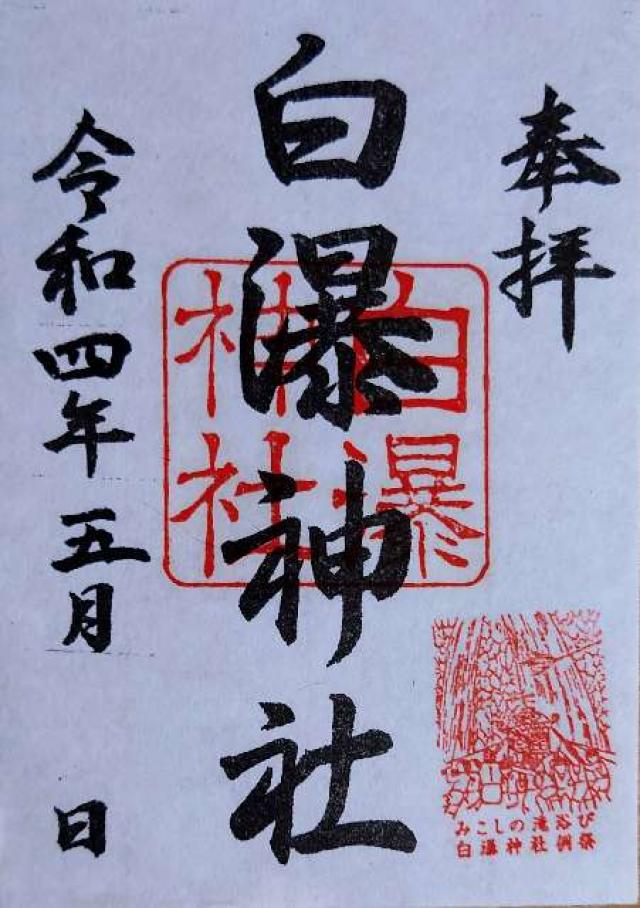 奉拝
白瀑神社
白瀑
神社
令和四年五月 日
みこしの滝浴び
白瀑神社例祭